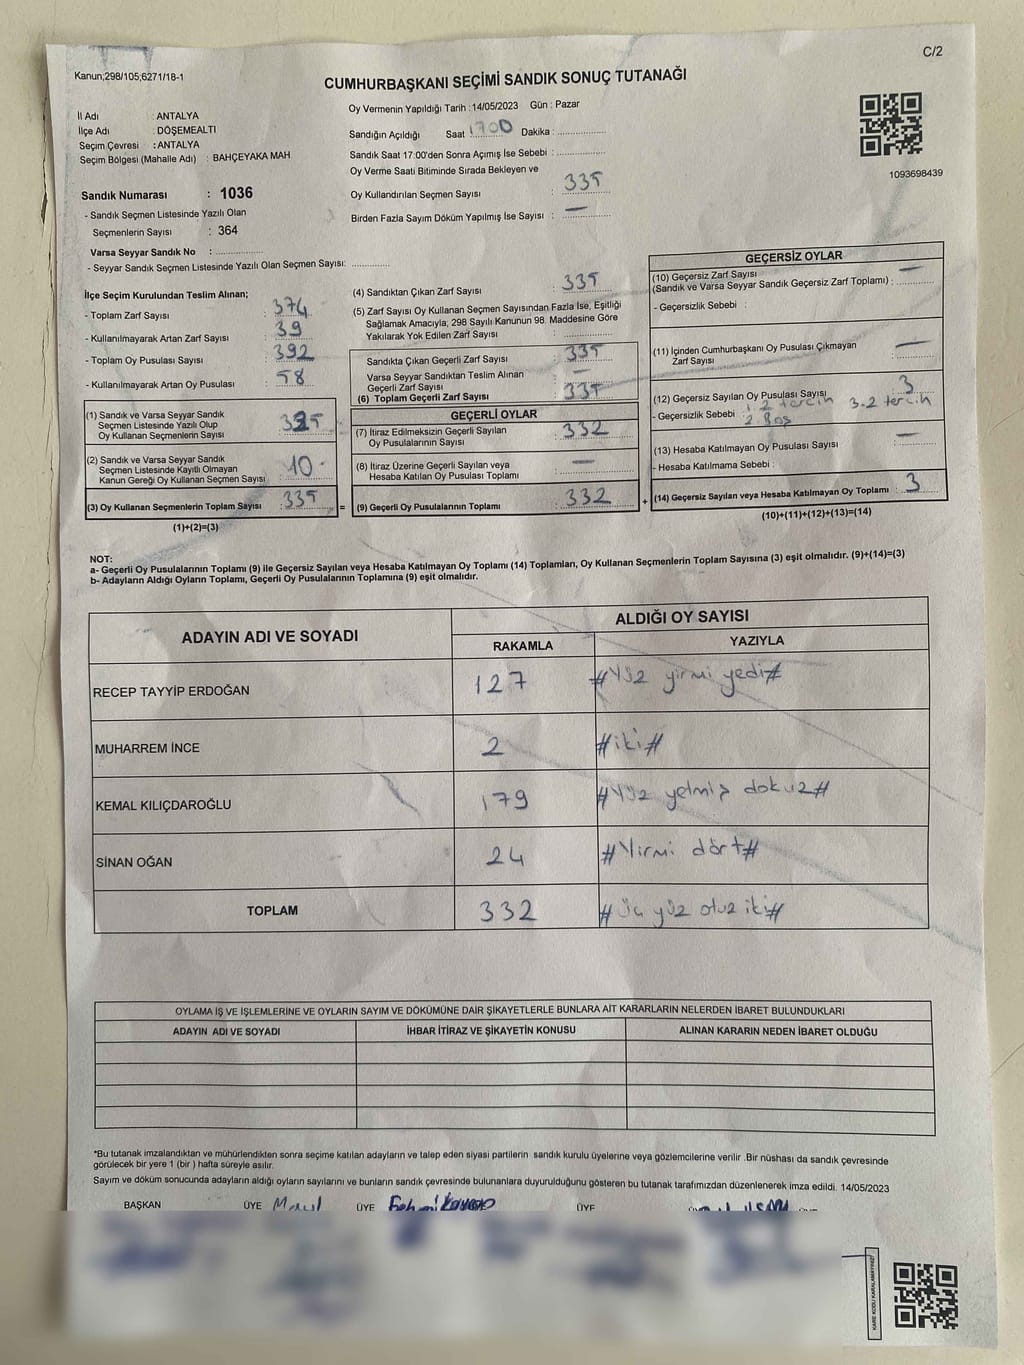 C/2
Kanun;298/105;6271/18-1
CUMHURBAŞKANI SEÇİMİ SANDIK SONUÇ TUTANAĞI
İl Adı : ANTALYA
İlçe Adı : DÖŞEMEALTI
Seçim Çevresi : ANTALYA
Seçim Bölgesi (Mahalle Adı) : BAHÇEYAKA MAH
Sandık Numarası : 1036
- Sandık Seçmen Listesinde Yazılı Olan
Seçmenlerin Sayısı : 364
Varsa Seyyar Sandık No :
- Seyyar Sandık Seçmen Listesinde Yazılı Olan Seçmen Sayısı:
Oy Vermenin Yapıldığı Tarih :14/05/2023 Gün : Pazar
Sandığın Açıldığı Saat 1700 Dakika :
Sandık Saat 17:00'den Sonra Açımış İse Sebebi :
Oy Verme Saati Bitiminde Sırada Bekleyen ve
Oy Kullandırılan Seçmen Sayısı : 335
Birden Fazla Sayım Döküm Yapılmış İse Sayısı : —
1093698439
İlçe Seçim Kurulundan Teslim Alınan;
- Toplam Zarf Sayısı : 374
- Kullanılmayarak Artan Zarf Sayısı : 39
- Toplam Oy Pusulası Sayısı : 392
- Kullanılmayarak Artan Oy Pusulası : 58
(1) Sandık ve Varsa Seyyar Sandık
Seçmen Listesinde Yazılı Olup
Oy Kullanan Seçmenlerin Sayısı : 325
(2) Sandık ve Varsa Seyyar Sandık
Seçmen Listesinde Kayıtlı Olmayan
Kanun Gereği Oy Kullanan Seçmen Sayısı : 10
(3) Oy Kullanan Seçmenlerin Toplam Sayısı : 335 =
(1)+(2)=(3)
(4) Sandıktan Çıkan Zarf Sayısı : 335
(5) Zarf Sayısı Oy Kullanan Seçmen Sayısından Fazla İse, Eşitliği
Sağlamak Amacıyla, 298 Sayılı Kanunun 98. Maddesine Göre
Yakılarak Yok Edilen Zarf Sayısı :
Sandıkta Çıkan Geçerli Zarf Sayısı : 335
Varsa Seyyar Sandıktan Teslim Alınan
Geçerli Zarf Sayısı : —
(6) Toplam Geçerli Zarf Sayısı : 335
GEÇERLİ OYLAR
(7) İtiraz Edilmeksizin Geçerli Sayılan
Oy Pusulalarının Sayısı : 332
(8) İtiraz Üzerine Geçerli Sayılan veya
Hesaba Katılan Oy Pusulası Toplamı : —
(9) Geçerli Oy Pusulalarının Toplamı : 332 +
GEÇERSİZ OYLAR
(10) Geçersiz Zarf Sayısı
(Sandık ve Varsa Seyyar Sandık Geçersiz Zarf Toplamı) : —
- Geçersizlik Sebebi :
(11) İçinden Cumhurbaşkanı Oy Pusulası Çıkmayan
Zarf Sayısı : —
(12) Geçersiz Sayılan Oy Pusulası Sayısı : 3
- Geçersizlik Sebebi : 1. 2 tercih 3. 2 tercih
2. Boş
(13) Hesaba Katılmayan Oy Pusulası Sayısı : —
- Hesaba Katılmama Sebebi :
(14) Geçersiz Sayılan veya Hesaba Katılmayan Oy Toplamı : 3
(10)+(11)+(12)+(13)=(14)
NOT:
a- Geçerli Oy Pusulalarının Toplamı (9) ile Geçersiz Sayılan veya Hesaba Katılmayan Oy Toplamı (14) Toplamları, Oy Kullanan Seçmenlerin Toplam Sayısına (3) eşit olmalıdır. (9)+(14)=(3)
b- Adayların Aldığı Oyların Toplamı, Geçerli Oy Pusulalarının Toplamına (9) eşit olmalıdır.
ADAYIN ADI VE SOYADI ALDIĞI OY SAYISI
RAKAMLA YAZIYLA
RECEP TAYYİP ERDOĞAN 127 #Yüz yirmi yedi#
MUHARREM İNCE 2 #iki#
KEMAL KILIÇDAROĞLU 179 #Yüz yetmiş dokuz#
SİNAN OĞAN 24 #Yirmi dört#
TOPLAM 332 #Üç yüz otuz iki#
OYLAMA İŞ VE İŞLEMLERİNE VE OYLARIN SAYIM VE DÖKÜMÜNE DAİR ŞİKAYETLERLE BUNLARA AİT KARARLARIN NELERDEN İBARET BULUNDUKLARI
ADAYIN ADI VE SOYADI İHBAR İTİRAZ VE ŞİKAYETİN KONUSU ALINAN KARARIN NEDEN İBARET OLDUĞU
*Bu tutanak imzalandıktan ve mühürlendikten sonra seçime katılan adayların ve talep eden siyasi partilerin sandık kurulu üyelerine veya gözlemcilerine verilir .Bir nüshası da sandık çevresinde
görülecek bir yere 1 (bir ) hafta süreyle asılır.
Sayım ve döküm sonucunda adayların aldığı oyların sayılarını ve bunların sandık çevresinde bulunanlara duyurulduğunu gösteren bu tutanak tarafımızdan düzenlenerek imza edildi. 14/05/2023
BAŞKAN ÜYE ÜYE ÜYE
KARE KODU KARALAMAYINIZ!